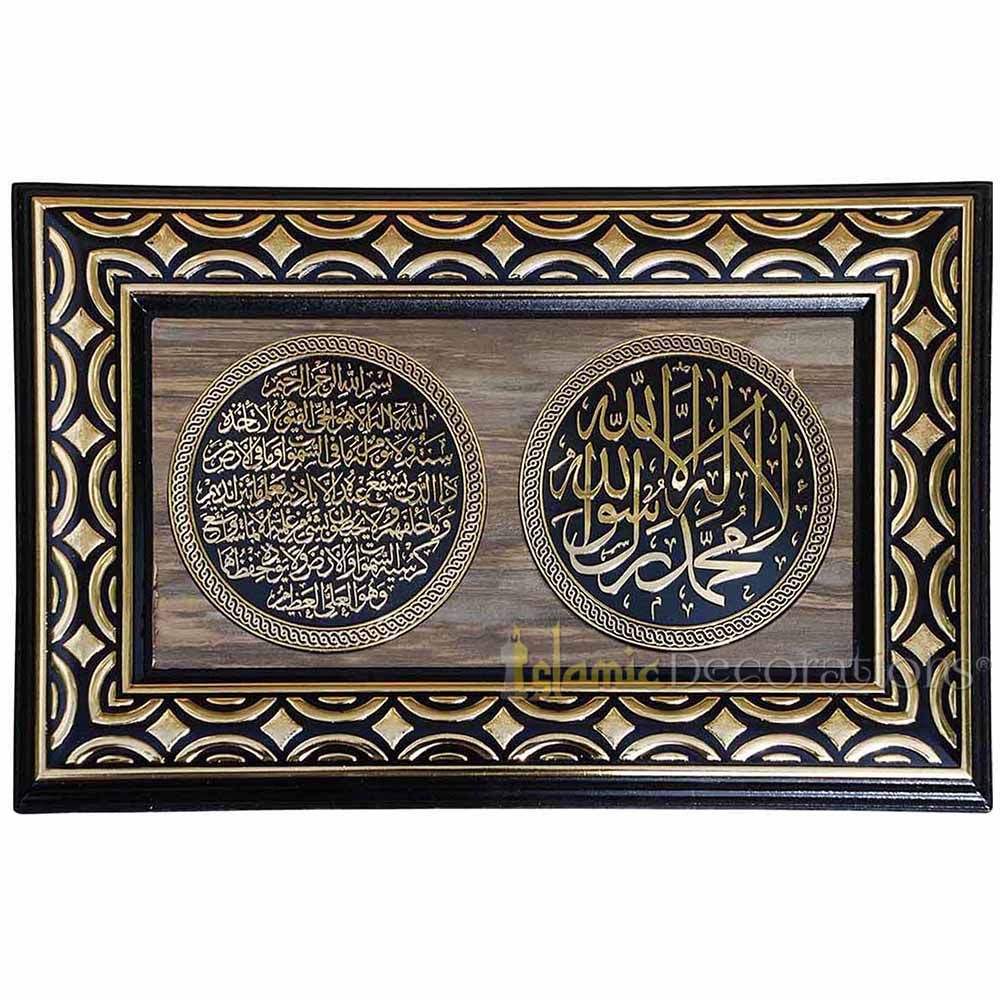 لا إله إلا الله
محمد رسول الله
بسم الله الرحمن الرحيم
الله لا اله الا هو الحي القيوم لا تأخذه
سنة ولا نوم له ما في السموات وما في الارض من
ذا الذي يشفع عنده الا باذنه يعلم ما بين ايديهم
وما خلفهم ولا يحيطون بشيء من علمه الا بما شاء وسع
كرسيه السموات والارض ولا يؤده حفظهما
وهو العلي العظيم
Islamic Decorations